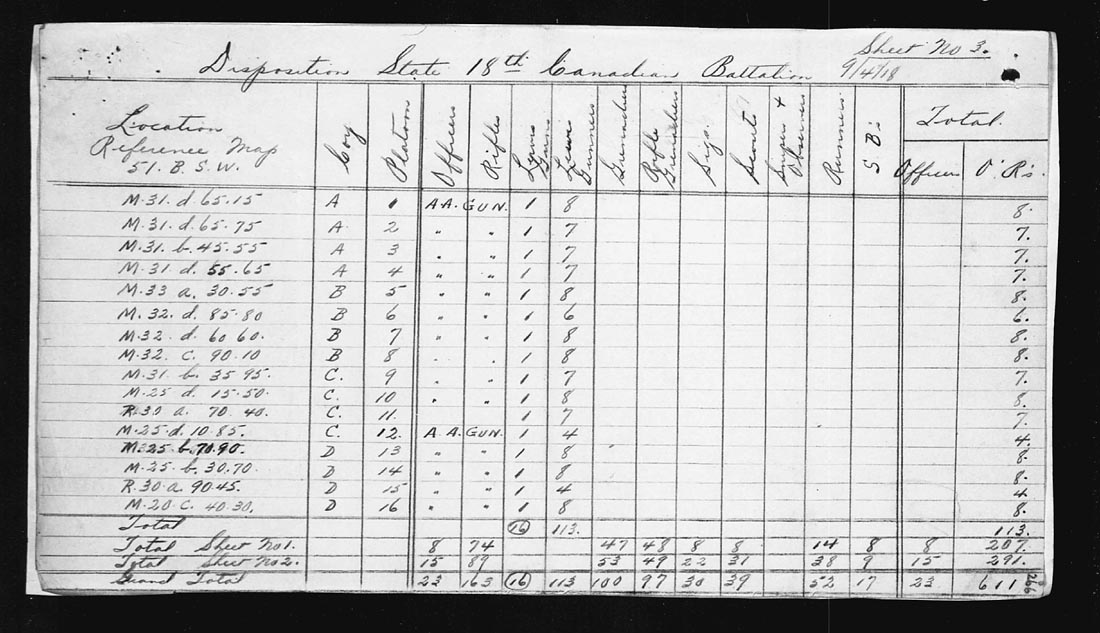 Sheet No 3.
Disposition State 18th Canadian Battalion 9/4/18
Location Reference Map 51. B. S. W. Coy Platoon Officers Rifles Lewis Guns Lewis Gunners Grenadiers Rifle Grenadiers Sigs. Scouts Snipers + Observers Runners S. B's Total.
Officers O' R's.
M.31. d. 65.15 A 1 A.A. GUN. 1 8 8.
M.31. d. 65.75 A. 2 " " 1 7 7.
M.31. b. 45.55 A 3 " " 1 7 7.
M.31 d. 55.65 A 4 " " 1 7 7.
M.33 a. 30.55 B 5 " " 1 8 8.
M. 32. d. 85.80 B 6 " " 1 6 6.
M.32. d. 60 60. B 7 " " 1 8 8.
M.32. c. 90.10 B 8 " " 1 8 8.
M.31 b. 35 95. C. 9 " " 1 7 7.
M.25 d. 15.50. C. 10 " " 1 8 8.
R.30 a. 70. 40. C. 11. 1 7 7.
M.25.d. 10.85. C. 12. A. A. GUN. 1 4 4.
M.25.b.70.90. D 13 " " 1 8 8.
M.25 b. 30.70. D 14 " " 1 8 8.
R.30.a. 90.45. D 15 " " 1 4 4
M.20.C. 40.30. D 16 " " 1 8 8.
Total 16 113. 113.
Total Sheet No1. 8 74 47 48 8 8 14 8 8 207.
Total Sheet No2. 15 89 53 49 22 31 38 9 15 291.
Grand Total 23 163 16 113 100 97 30 39 52 17 23 611
266